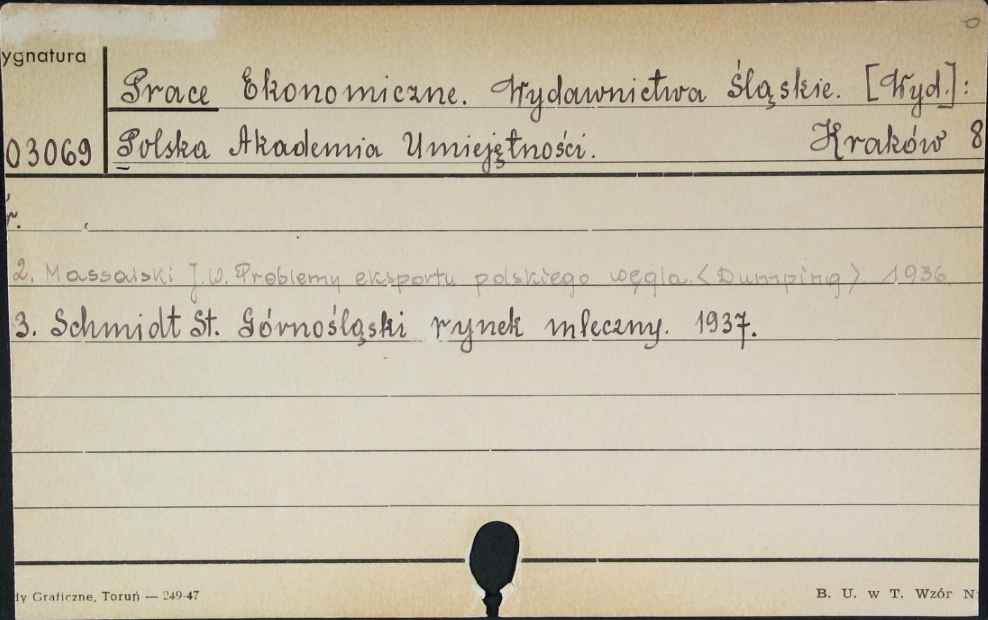 ygnatura
Prace Ekonomiczne. Wydawnictwa Śląskie. [Wyd.]:
03069 Polska Akademia Umiejętności. Kraków 8
r.
2. Massalski J.W. Problemy eksportu polskiego węgla <Dumping> 1936.
3. Schmidt St. Górnośląski rynek mleczny. 1937.
dy Graficzne, Toruń — 249-47
B. U. w T. Wzór N